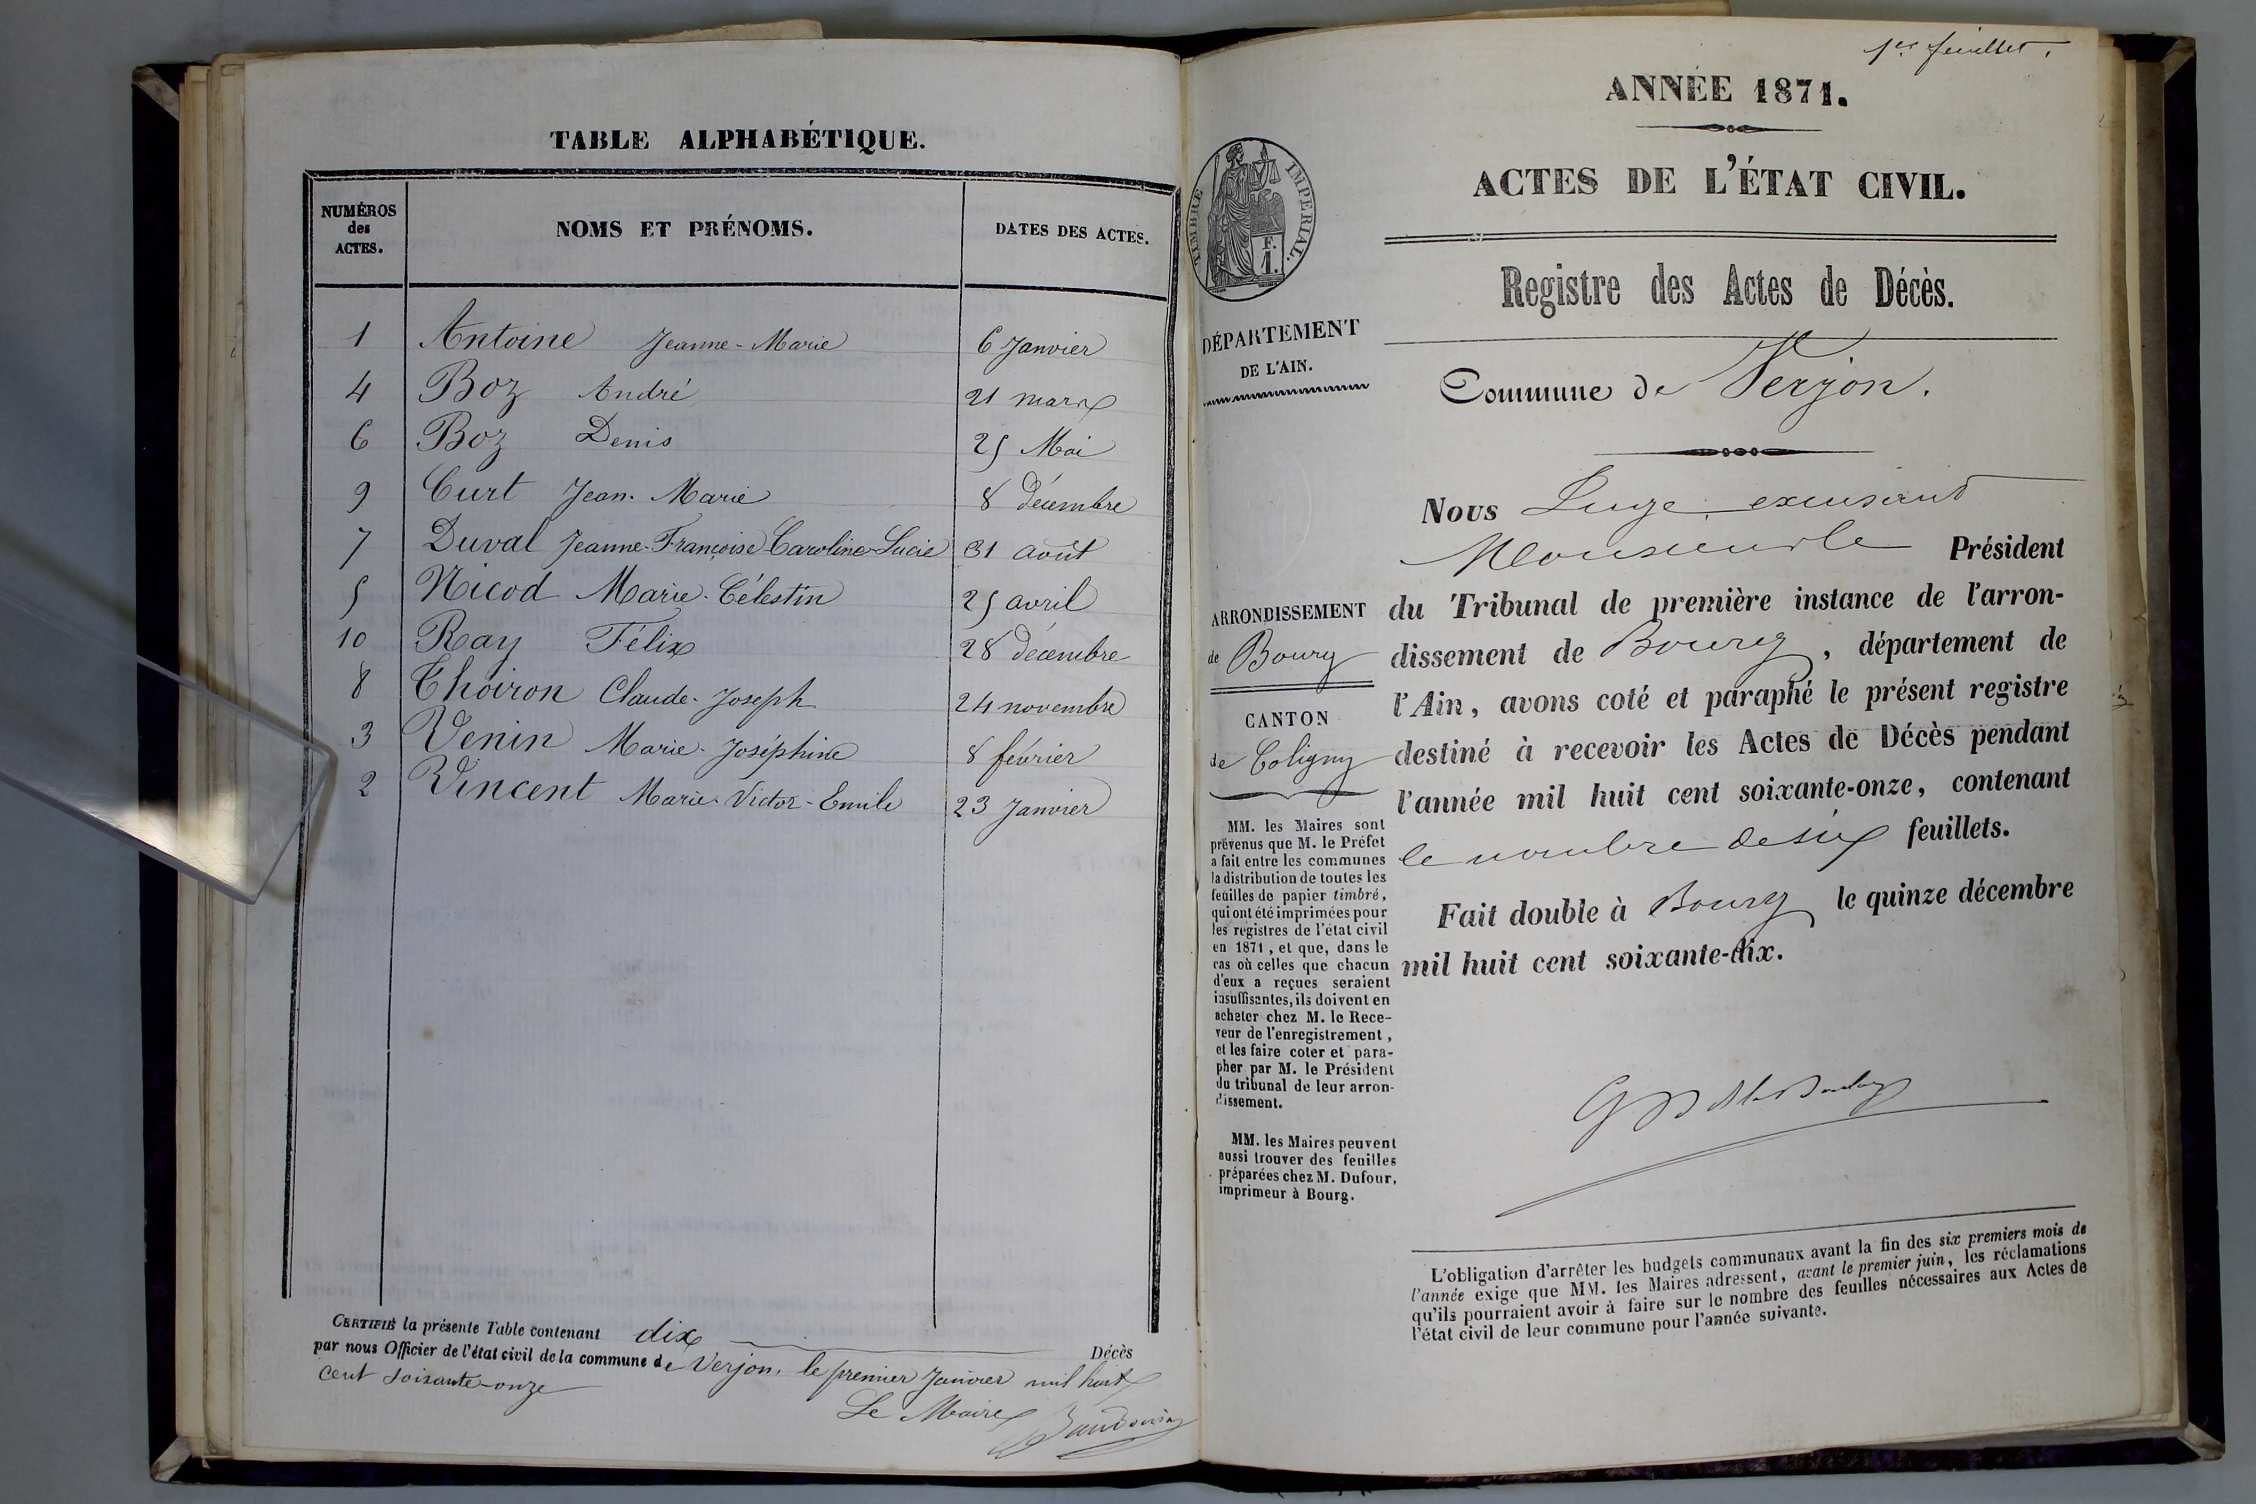 TABLE ALPHABÉTIQUE.
NUMÉROS des ACTES. NOMS ET PRÉNOMS. DATES DES ACTES.
1 Antoine Jeanne-Marie 6 Janvier
4 Boz André 21 mars
6 Boz Denis 25 Mai
9 Curt Jean-Marie 8 décembre
7 Duval Jeanne-Françoise-Caroline-Lucie 31 août
5 Nicod Marie-Célestin 25 avril
10 Ray Félix 28 décembre
8 Thoiron Claude-Joseph 24 novembre
3 Venin Marie-Joséphine 8 février
2 Vincent Marie-Victor-Emile 23 Janvier
CERTIFIÉ la présente Table contenant dix Décès
par nous Officier de l'état civil de la commune de Verjon, le premier Janvier mil huit
cent soixante-onze
Le Maire
1er feuillet.
ANNÉE 1871.
ACTES DE L'ÉTAT CIVIL.
TIMBRE IMPERIAL.
F.
1.
Registre des Actes de Décès.
DÉPARTEMENT
DE L'AIN.
Commune de Verjon.
Nous Juge, excusant
Monsieur le Président
du Tribunal de première instance de l'arron-
dissement de Bourg, département de
l'Ain, avons coté et paraphé le présent registre
destiné à recevoir les Actes de Décès pendant
l'année mil huit cent soixante-onze, contenant
le nombre de six feuillets.
Fait double à Bourg le quinze décembre
mil huit cent soixante-dix.
ARRONDISSEMENT
de Bourg
CANTON
de Coligny
MM. les Maires sont
prévenus que M. le Préfet
a fait entre les communes
la distribution de toutes les
feuilles de papier timbré,
qui ont été imprimées pour
les registres de l'état civil
en 1871, et que, dans le
cas où celles que chacun
d'eux a reçues seraient
insuffisantes, ils doivent en
acheter chez M. le Rece-
veur de l'enregistrement,
et les faire coter et para-
pher par M. le Président
du tribunal de leur arron-
dissement.
MM. les Maires peuvent
aussi trouver des feuilles
préparées chez M. Dufour,
imprimeur à Bourg.
L'obligation d'arrêter les budgets communaux avant la fin des six premiers mois de
l'année exige que MM. les Maires adressent, avant le premier juin, les réclamations
qu'ils pourraient avoir à faire sur le nombre des feuilles nécessaires aux Actes de
l'état civil de leur commune pour l'année suivante.